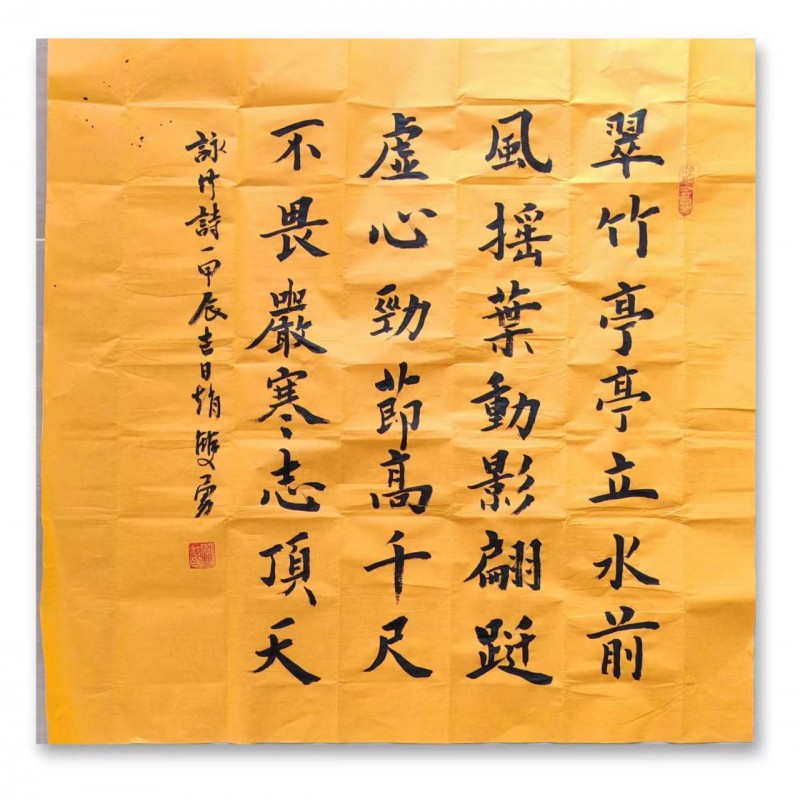 翠竹亭亭立水前
風摇葉動影翩跹
虚心勁節高千尺
不畏嚴寒志頂天
詠竹詩一甲辰吉日趙雙勇